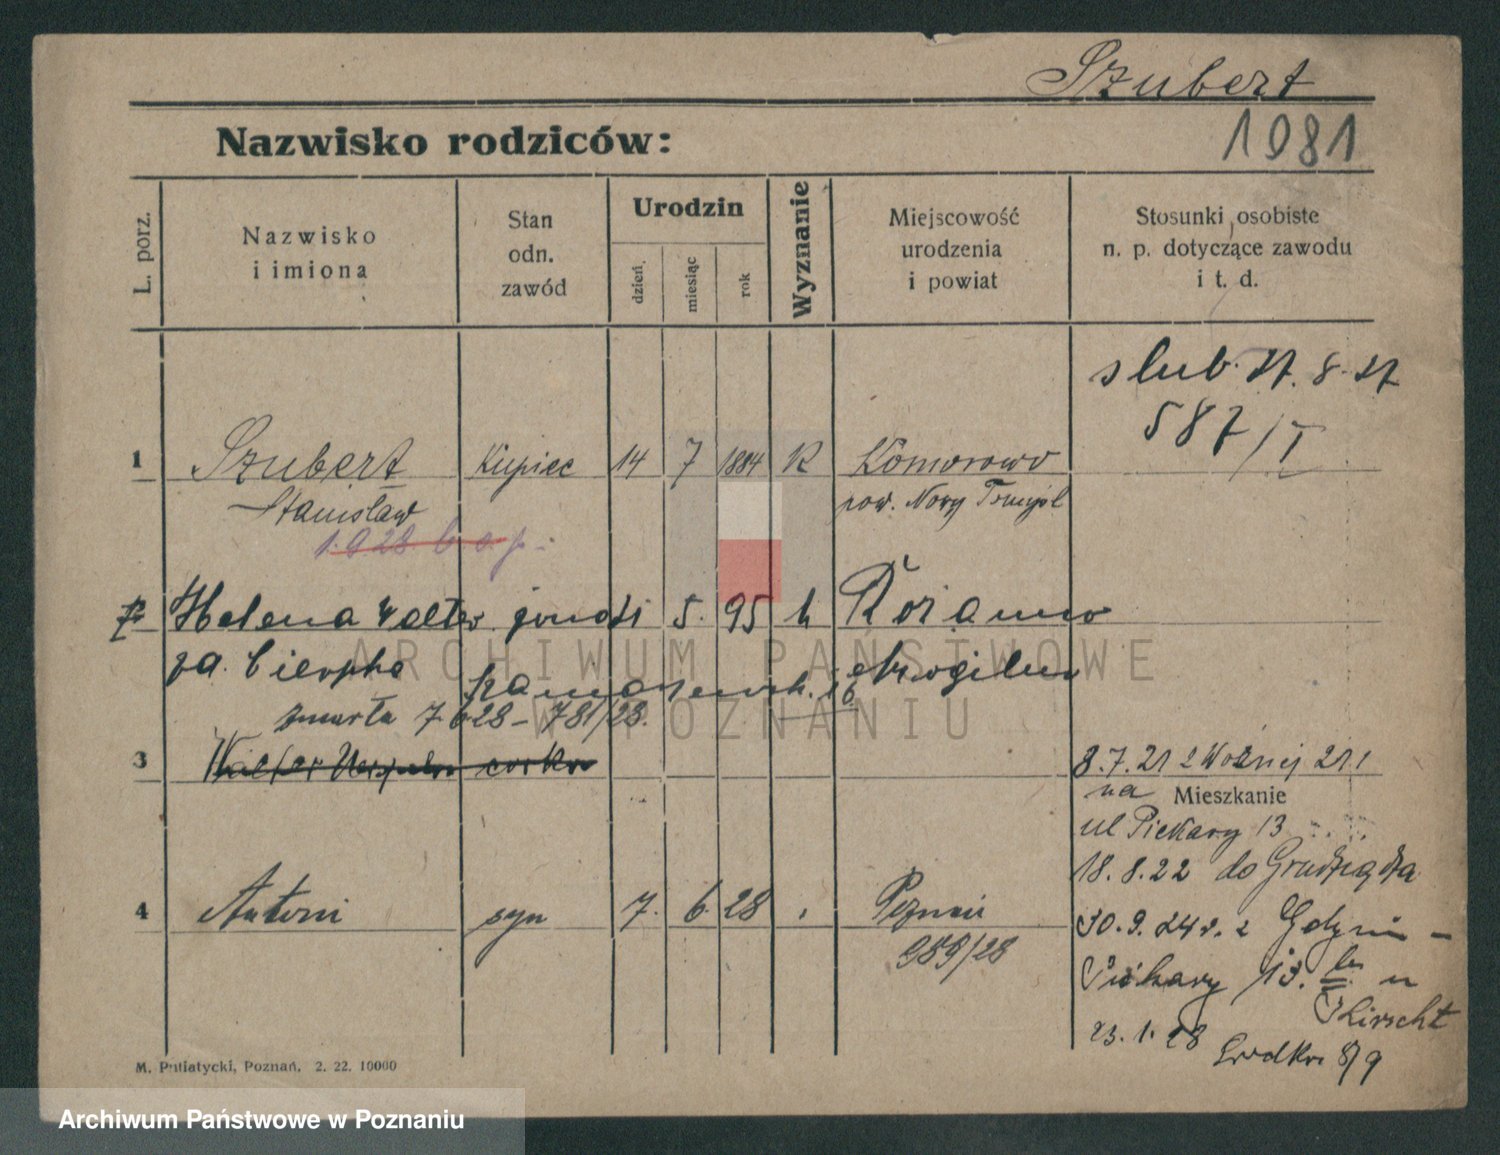 Szubert
1981
Nazwisko rodziców:
L. porz.
Nazwisko
i imiona
Stan
odn.
zawód
Urodzin
dzień.
miesiąc
rok
Wyznanie
Miejscowość
urodzenia
i powiat
Stosunki osobiste
n. p. dotyczące zawodu
i t. d.
slub. 27. 8. 27
587/I
1 Szubert Kupiec 14 7 1884 K Komorowo
Stanisław pow. Nowy Tomyśl
Helena Walter 5. 95 k
Mogilno
zmarła 7.6.28 – 781/28.
3 Walter córka
8.7.21 z Woźnej 21
na Mieszkanie
ul Piekary 13
18. 8. 22 do Grudziądza
4 Antoni syn 7. 6. 28 Poznań
989/28
30. 9. 24 r. z Gdyni –
Piekary 13.
23. 1. 28
8/9
M. Putiatycki, Poznań, 2. 22. 10000
ARCHIWUM PAŃSTWOWE
W POZNANIU
Archiwum Państwowe w Poznaniu